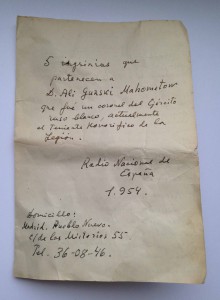 5
que
pertenecen a
D. Ali Gurski Mahometow
que fué un coronel del Ejército
ruso blanco, actualmente
el Teniente Honorífico de la
Legión.
Radio Nacional de
España
1.954.
Domicilio:
Madrid. Pueblo Nuevo.
C/ de los Misterios 55.
Tel. 36-08-46.